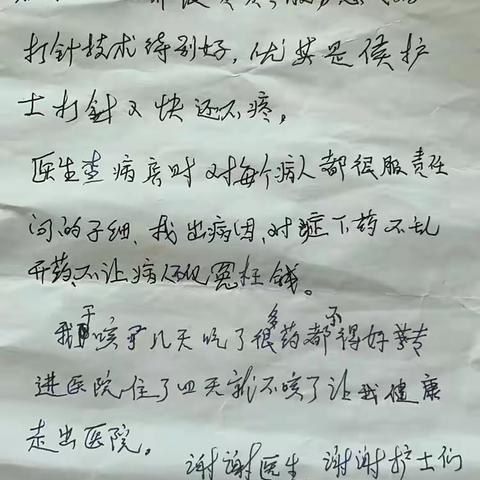 打针技术待别好，优其是侯护
士打針又快还不疼。
医生查病房时对每个病人都很服责任
问的子细、找出病因，对症下药不乱
开药，不让病人花冤枉钱。
我干咳了几天吃了很多药都不得好转
进医院住了四天就不咳了让我健康
走出医院。
谢谢医生 谢谢护士们